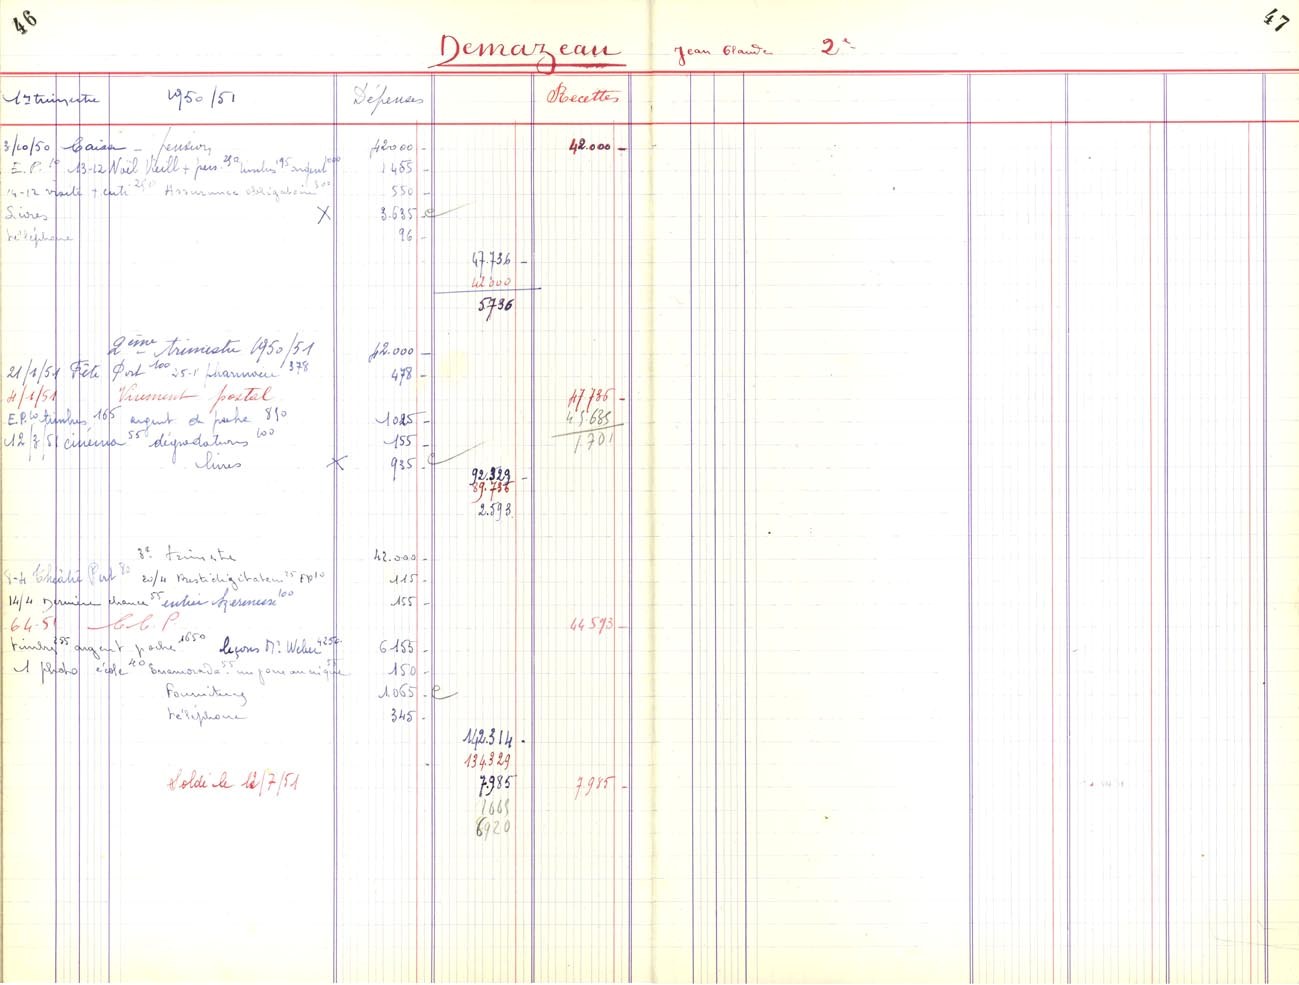 46
47
Demazeau Jean Claude 2e
1er trimestre 1950/51 Dépenses Recettes
3/10/50 Caisse - pension 42000 - 42.000 -
E.P. 10 13-12 Noël Vieill + pers. 250 timbres 195 argent 1000 1455 -
14-12 visite + cuti 250 Assurance obligatoire 300 550 -
Livres X 3.635 -
téléphone 96 -
47.736 -
42000
5736
2ème trimestre 1950/51 42.000 -
21/1/51 Fête Port 100 25-1 pharmacie 378 478 -
4/1/51 Virement postal 47736 -
E.P. 10 timbres 165 argent de poche 850 1025 - 45.685
12/3/51 cinéma 55 dégradations 100 155 - 1.701
livres X 935 -
92.329 -
89.736
2.593
3e trimestre 42.000 -
8-4 Théâtre Port 80 20/4 Prestidigitateur 25 EP 10 115 -
14/4 Dernière chance 55 entrée kermesse 100 155 -
6 4-51 C.C.P. 44593 -
timbre 255 argent poche 1650 leçons Mr Weber 4250 6155 -
1 photo école 40 Enamorada 55 un gars au cirque 55 150 -
Fournitures 1065 -
téléphone 345 -
142.314 -
134329
7985
Soldé le 12/7/51 7.985 -
1065
6920